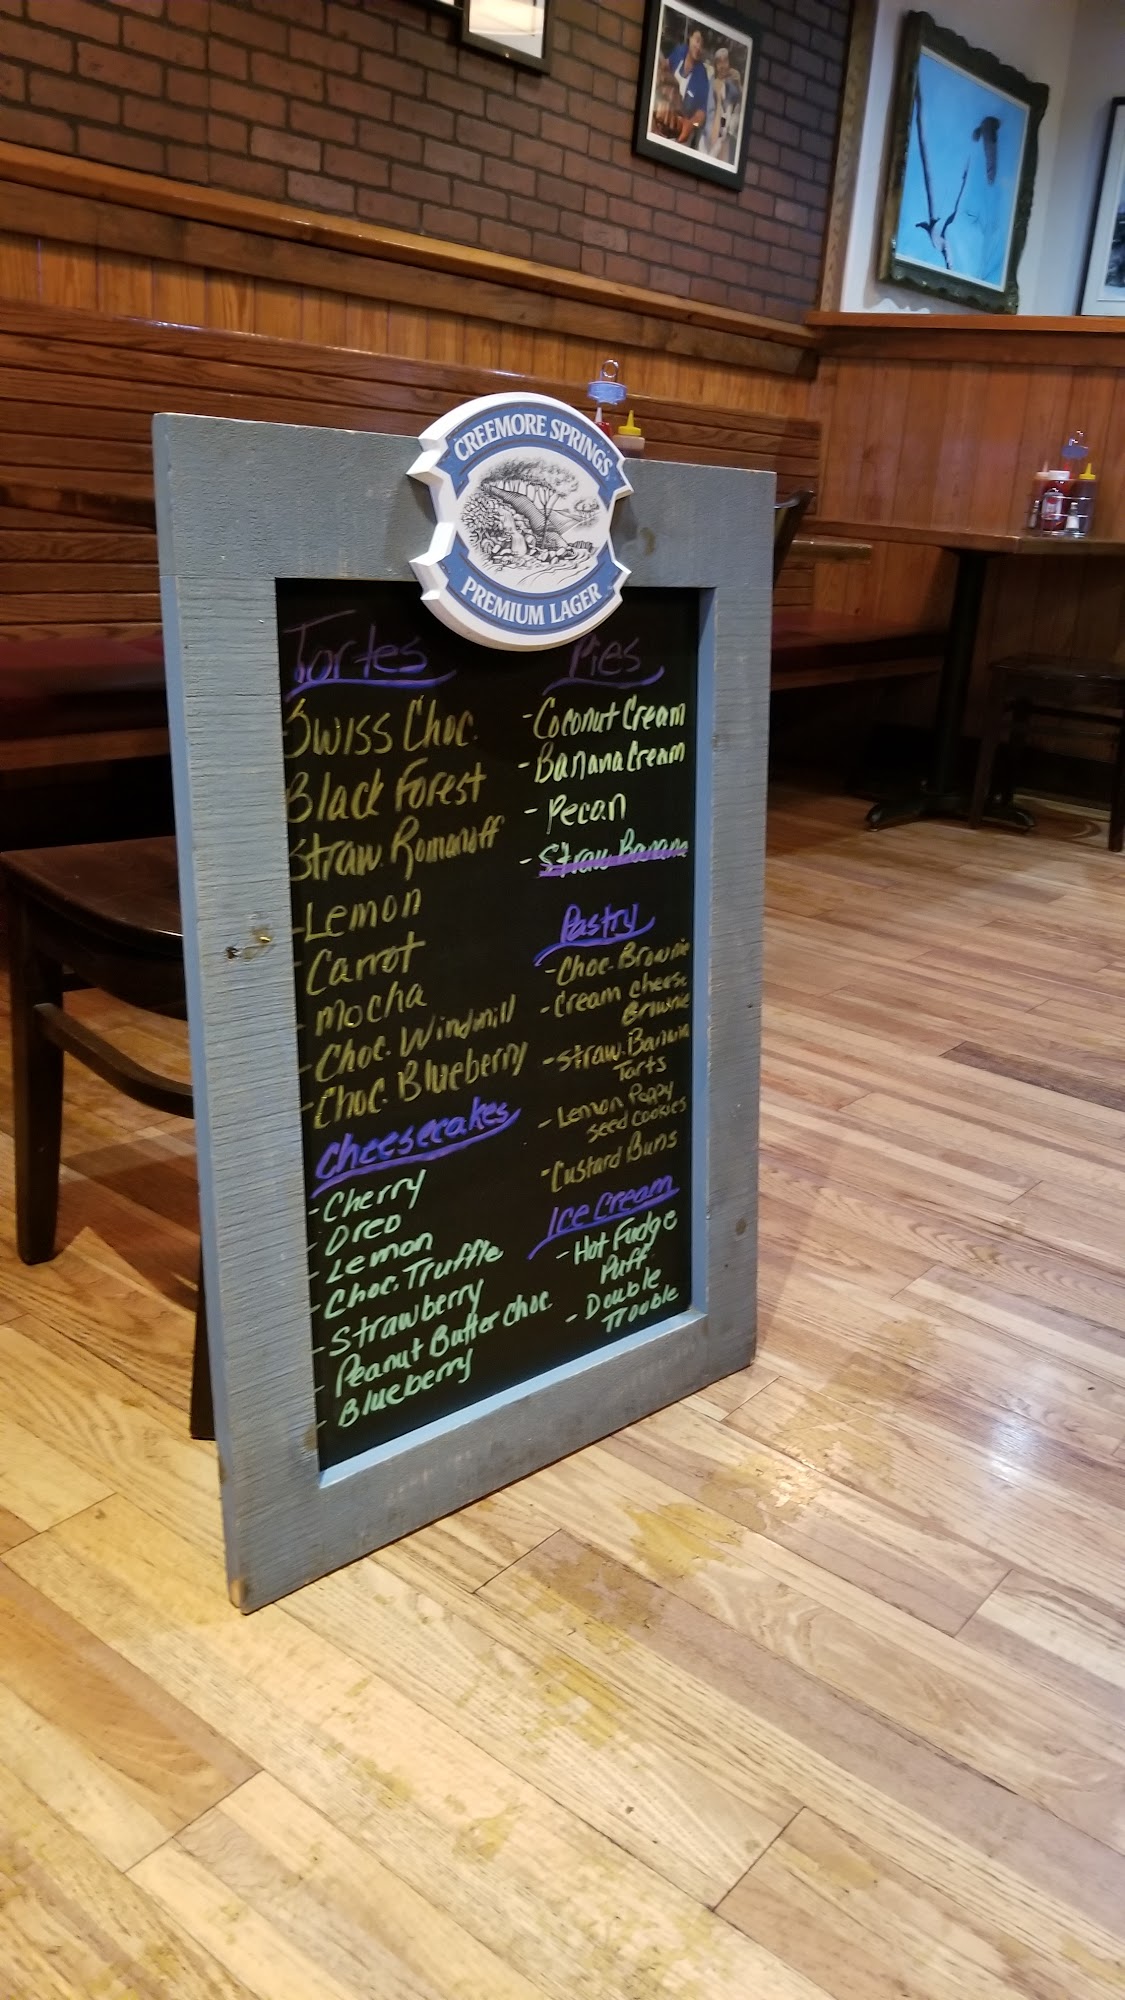 CREEMORE SPRINGS
PREMIUM LAGER
Tortes
Swiss Choc.
Black Forest
Straw. Romanoff
- Lemon
- Carrot
- Mocha
- Choc. Windmill
- Choc. Blueberry
Cheesecakes
- Cherry
- Oreo
- Lemon
- Choc. Truffle
- Strawberry
- Peanut Butter Choc.
- Blueberry
Pies
- Coconut Cream
- Banana Cream
- Pecan
- Straw Banana
Pastry
- Choc. Brownie
- Cream cheese
Brownie
- Straw. Banana
Tarts
- Lemon Poppy
seed cookies
- Custard Buns
Ice Cream
- Hot Fudge
Puff
- Double
Trouble